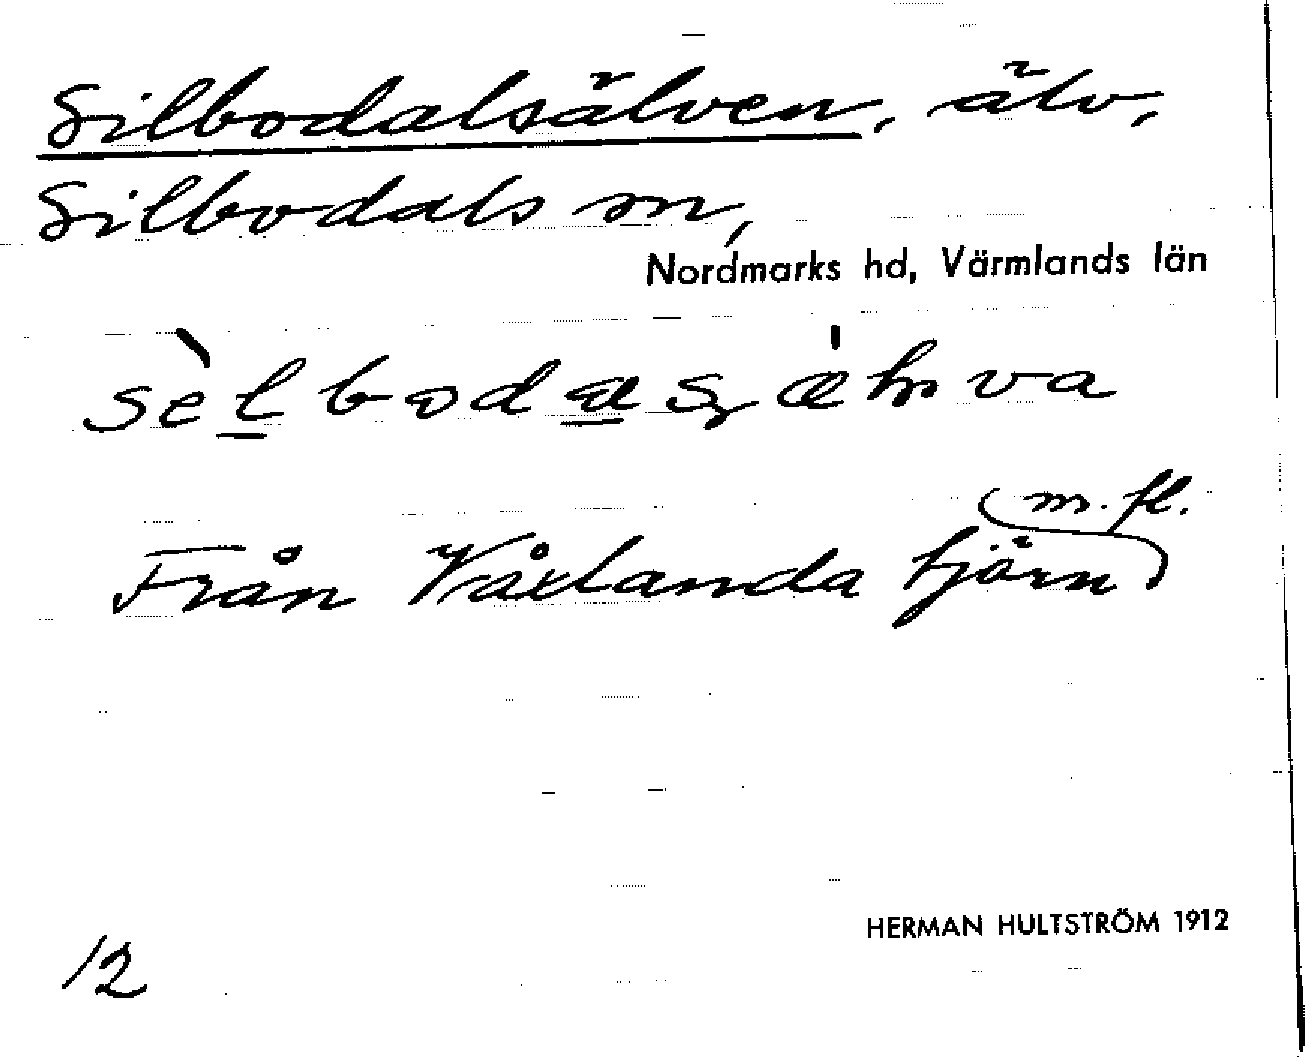 Silbodalsälven, älv,
Silbodals sn,
Nordmarks hd, Värmlands län
m. fl.
Från Våxlanda tjärn
HERMAN HULTSTRÖM 1912
12